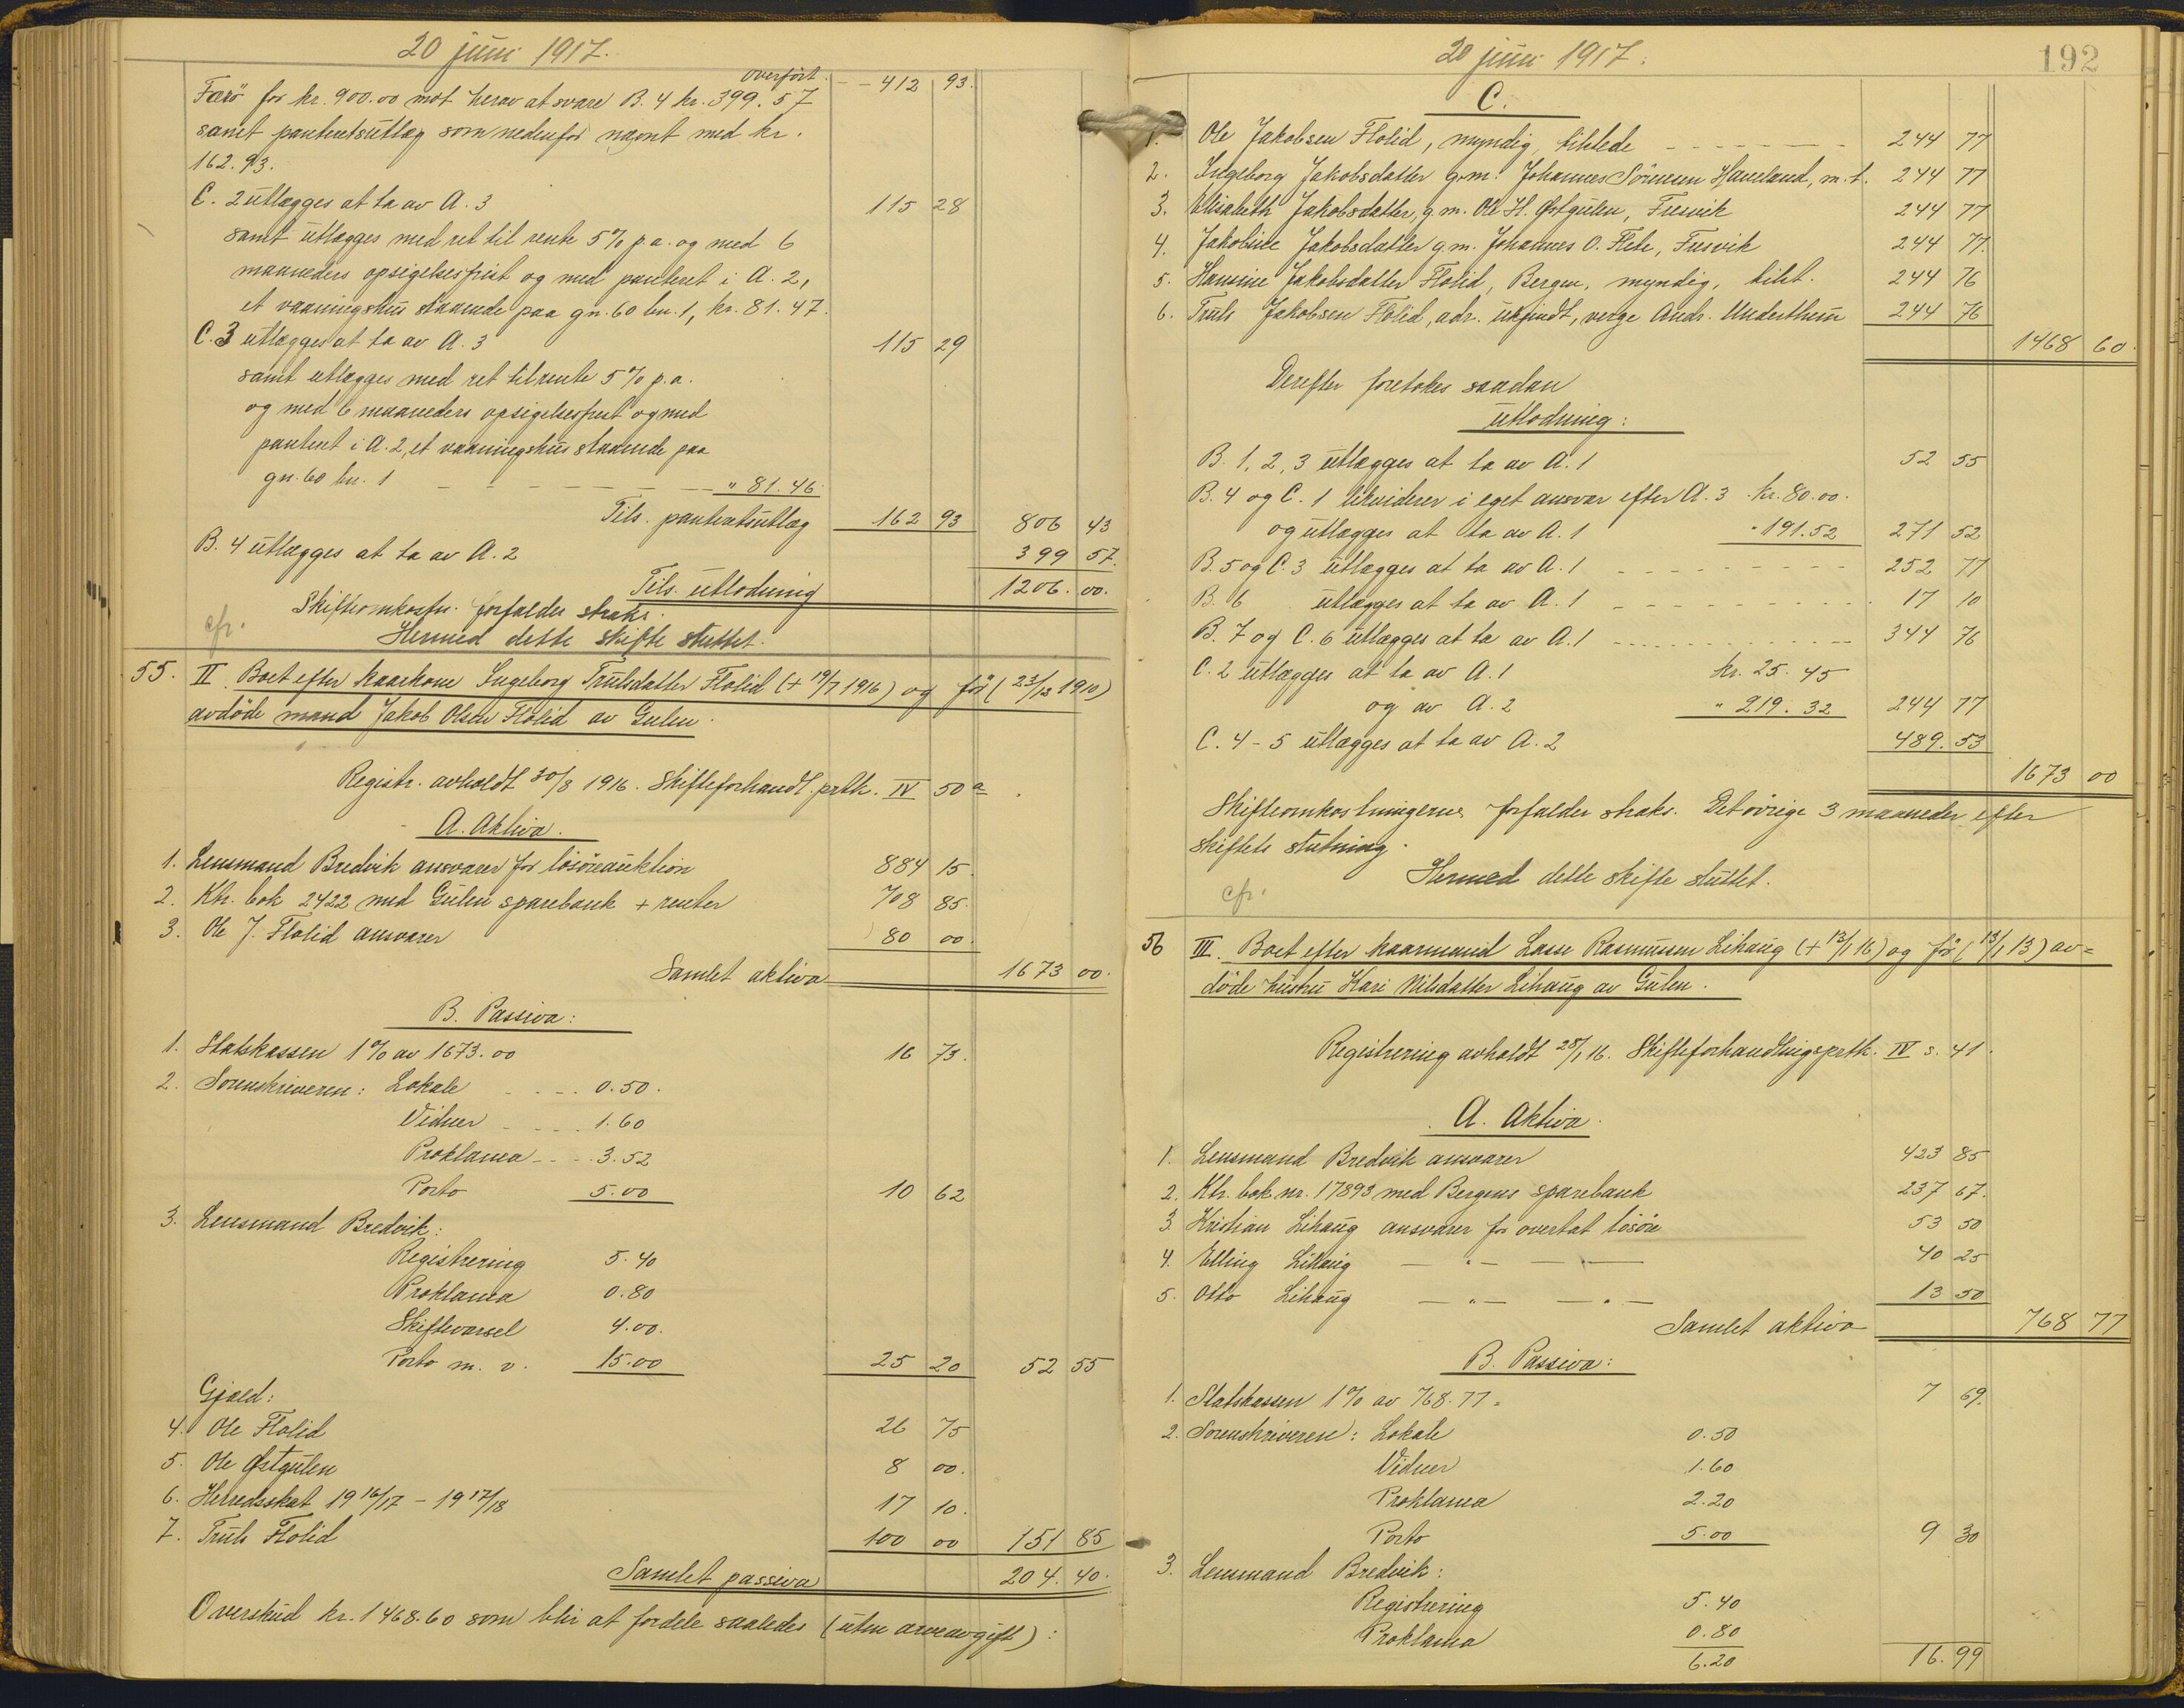 20 juni 1917.
overført - 412 93.
Færö for kr. 900.00 mot herav at svare B. 4 kr. 399.57
samt panteretsutlæg som nedenfor nævnt med kr.
162.93.
C. 2 utlægges at ta av A. 3 115 28
samt utlægges med ret til rente 5% p.a. og med 6
maaneders opsigelsesfrist og med panteret i A. 2,
et vaaningshus staaende paa gn. 60 bn. 1, kr. 81.47.
C. 3 utlægges at ta av A. 3 115 29
samt utlægges med ret til rente 5% p.a.
og med 6 maaneders opsigelsesfrist og med
panteret i A. 2, et vaaningshus staaende paa
gn. 60 bn. 1 - - - - - " 81.46
Tils. panteretsutlæg 162 93 806 43
B. 4 utlægges at ta av A. 2 399 57.
Tils. utlodning 1206.00.
Skifteomkostn. forfalder straks.
cfr. Hermed dette skifte sluttet.
55. II. Boet efter kaarkone Ingeborg Trulsdatter Flolid (+ 19/7 1916) og før (23/12 1910)
avdöde mand Jakob Olsen Flolid av Gulen.
Registr. avholdt 30/8 1916. Skifteforhandl. prtk. IV 50a.
A. Aktiva.
1. Lensmand Bredvik ansvarer for lösöreauktion 884 15.
2. Ktr. bok 2422 med Gulen sparebank + renter 708 85.
3. Ole J. Flolid ansvarer 80 00.
Samlet aktiva 1673 00.
B. Passiva:
1. Statskassen 1% av 1673.00 16 73.
2. Sorenskriveren: Lokale - - - 0.50.
Vidner - - - 1.60
Proklama - - - 3.52
Porto 5.00 10 62
3. Lensmand Bredvik:
Registrering 5.40
Proklama 0.80
Skiftevarsel 4.00.
Porto m. v. 15.00 25 20 52 55
Gjæld:
4. Ole Flolid 26 75
5. Ole Østgulen 8 00.
6. Herredsskat 19 16/17 - 19 17/18 17 10.
7. Truls Flolid 100 00 151 85
Samlet passiva 204.40.
Overskud kr. 1468.60 som blir at fordele saaledes (uten arveavgift):
20 juni 1917.
192
C.
1. Ole Jakobsen Flolid, myndig, tilstede - - - - 244 77
2. Ingeborg Jakobsdatter g.m. Johannes Sörensen Haveland, m.t. 244 77
3. Elisabeth Jakobsdatter, g.m. Ole H. Østgulen, Fuesvik 244 77
4. Jakobine Jakobsdatter g.m. Johannes O. Flete, Fuesvik 244 77.
5. Hansine Jakobsdatter Flolid, Bergen, myndig, tilst. 244 76
6. Truls Jakobsen Flolid, adr. ukjendt, verge Andr. Underthun 244 76
1468 60.
Derefter foretokes saadan
utlodning:
B. 1, 2, 3 utlægges at ta av A. 1 52 55
B. 4 og C. 1 likviderer i eget ansvar efter A. 3 kr. 80.00.
og utlægges at ta av A. 1 " 191.52 271 52
B. 5 og C. 3 utlægges at ta av A. 1 - - - - 252 77
B. 6 utlægges at ta av A. 1 - - - - 17 10
B. 7 og C. 6 utlægges at ta av A. 1 - - - - 344 76
C. 2 utlægges at ta av A. 1 kr. 25.45
og av A. 2 " 219.32 244 77
C. 4-5 utlægges at ta av A. 2 489.53
1673 00
Skifteomkostningerne forfalder straks. Det övrige 3 maaneder efter
skiftets slutning.
Hermed dette skifte sluttet.
cfr.
56 III. Boet efter kaarmand Lasse Rasmussen Lihaug (+ 12/1 16) og før (13/1 13) av=
döde hustru Kari Nilsdatter Lihaug av Gulen.
Registrering avholdt 25/1 16. Skifteforhandlingsprtk. IV s. 41.
A. Aktiva.
1. Lensmand Bredvik ansvarer 423 85
2. Ktr. bok nr. 17893 med Bergens sparebank 237 67.
3. Kristian Lihaug ansvarer for overtat lösöre 53 50
4. Elling Lihaug — " — — " — 40 25
5. Otto Lihaug — " — — " — 13 50
Samlet aktiva 768 77
B. Passiva:
1. Statskassen 1% av 768.77 = 7 69.
2. Sorenskriveren: Lokale 0.50
Vidner 1.60
Proklama 2.20
Porto 5.00 9 30
3. Lensmand Bredvik:
Registrering 5.40
Proklama 0.80
6.20 16.99